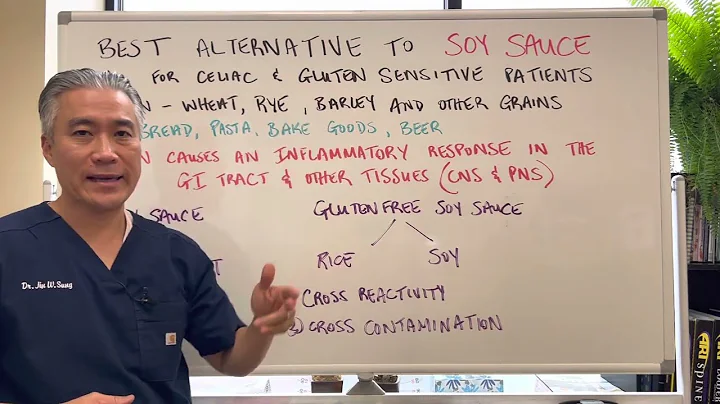 BEST ALTERNATIVE TO SOY SAUCE
FOR CELIAC & GLUTEN SENSITIVE PATIENTS
N - WHEAT, RYE, BARLEY AND OTHER GRAINS
BREAD, PASTA, BAKE GOODS, BEER
N CAUSES AN INFLAMMATORY RESPONSE IN THE
GI TRACT & OTHER TISSUES (CNS & PNS)
Y SAUCE
GLUTEN FREE SOY SAUCE
T
RICE
SOY
CROSS REACTIVITY
2) CROSS CONTAMINATION
Dr. Jin W. Sung
carhartt
SPINE